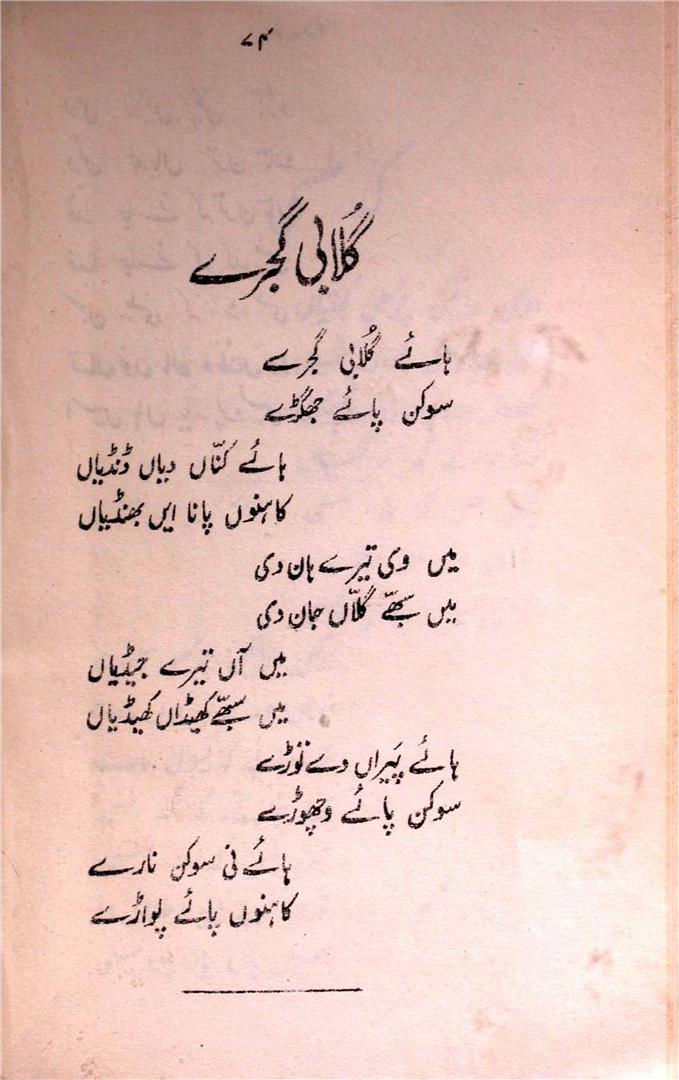 ۷۴
گُلابی گجرے
ہائے گُلابی گجرے
سوکن پائے جھگڑے
ہائے کنّاں دیاں ڈنڈیاں
کاہنوں پانا ایں بھنڈیاں
میں وی تیرے ہان دی
میں سبھّے گلاّں جان دی
میں آں تیرے جیڈیاں
میں سبھّے کھیڈاں کھیڈیاں
ہائے پَیراں دے توڑے
سوکن پائے وچھوڑے
ہائے نی سوکن نارے
کاہنوں پائے پواڑے